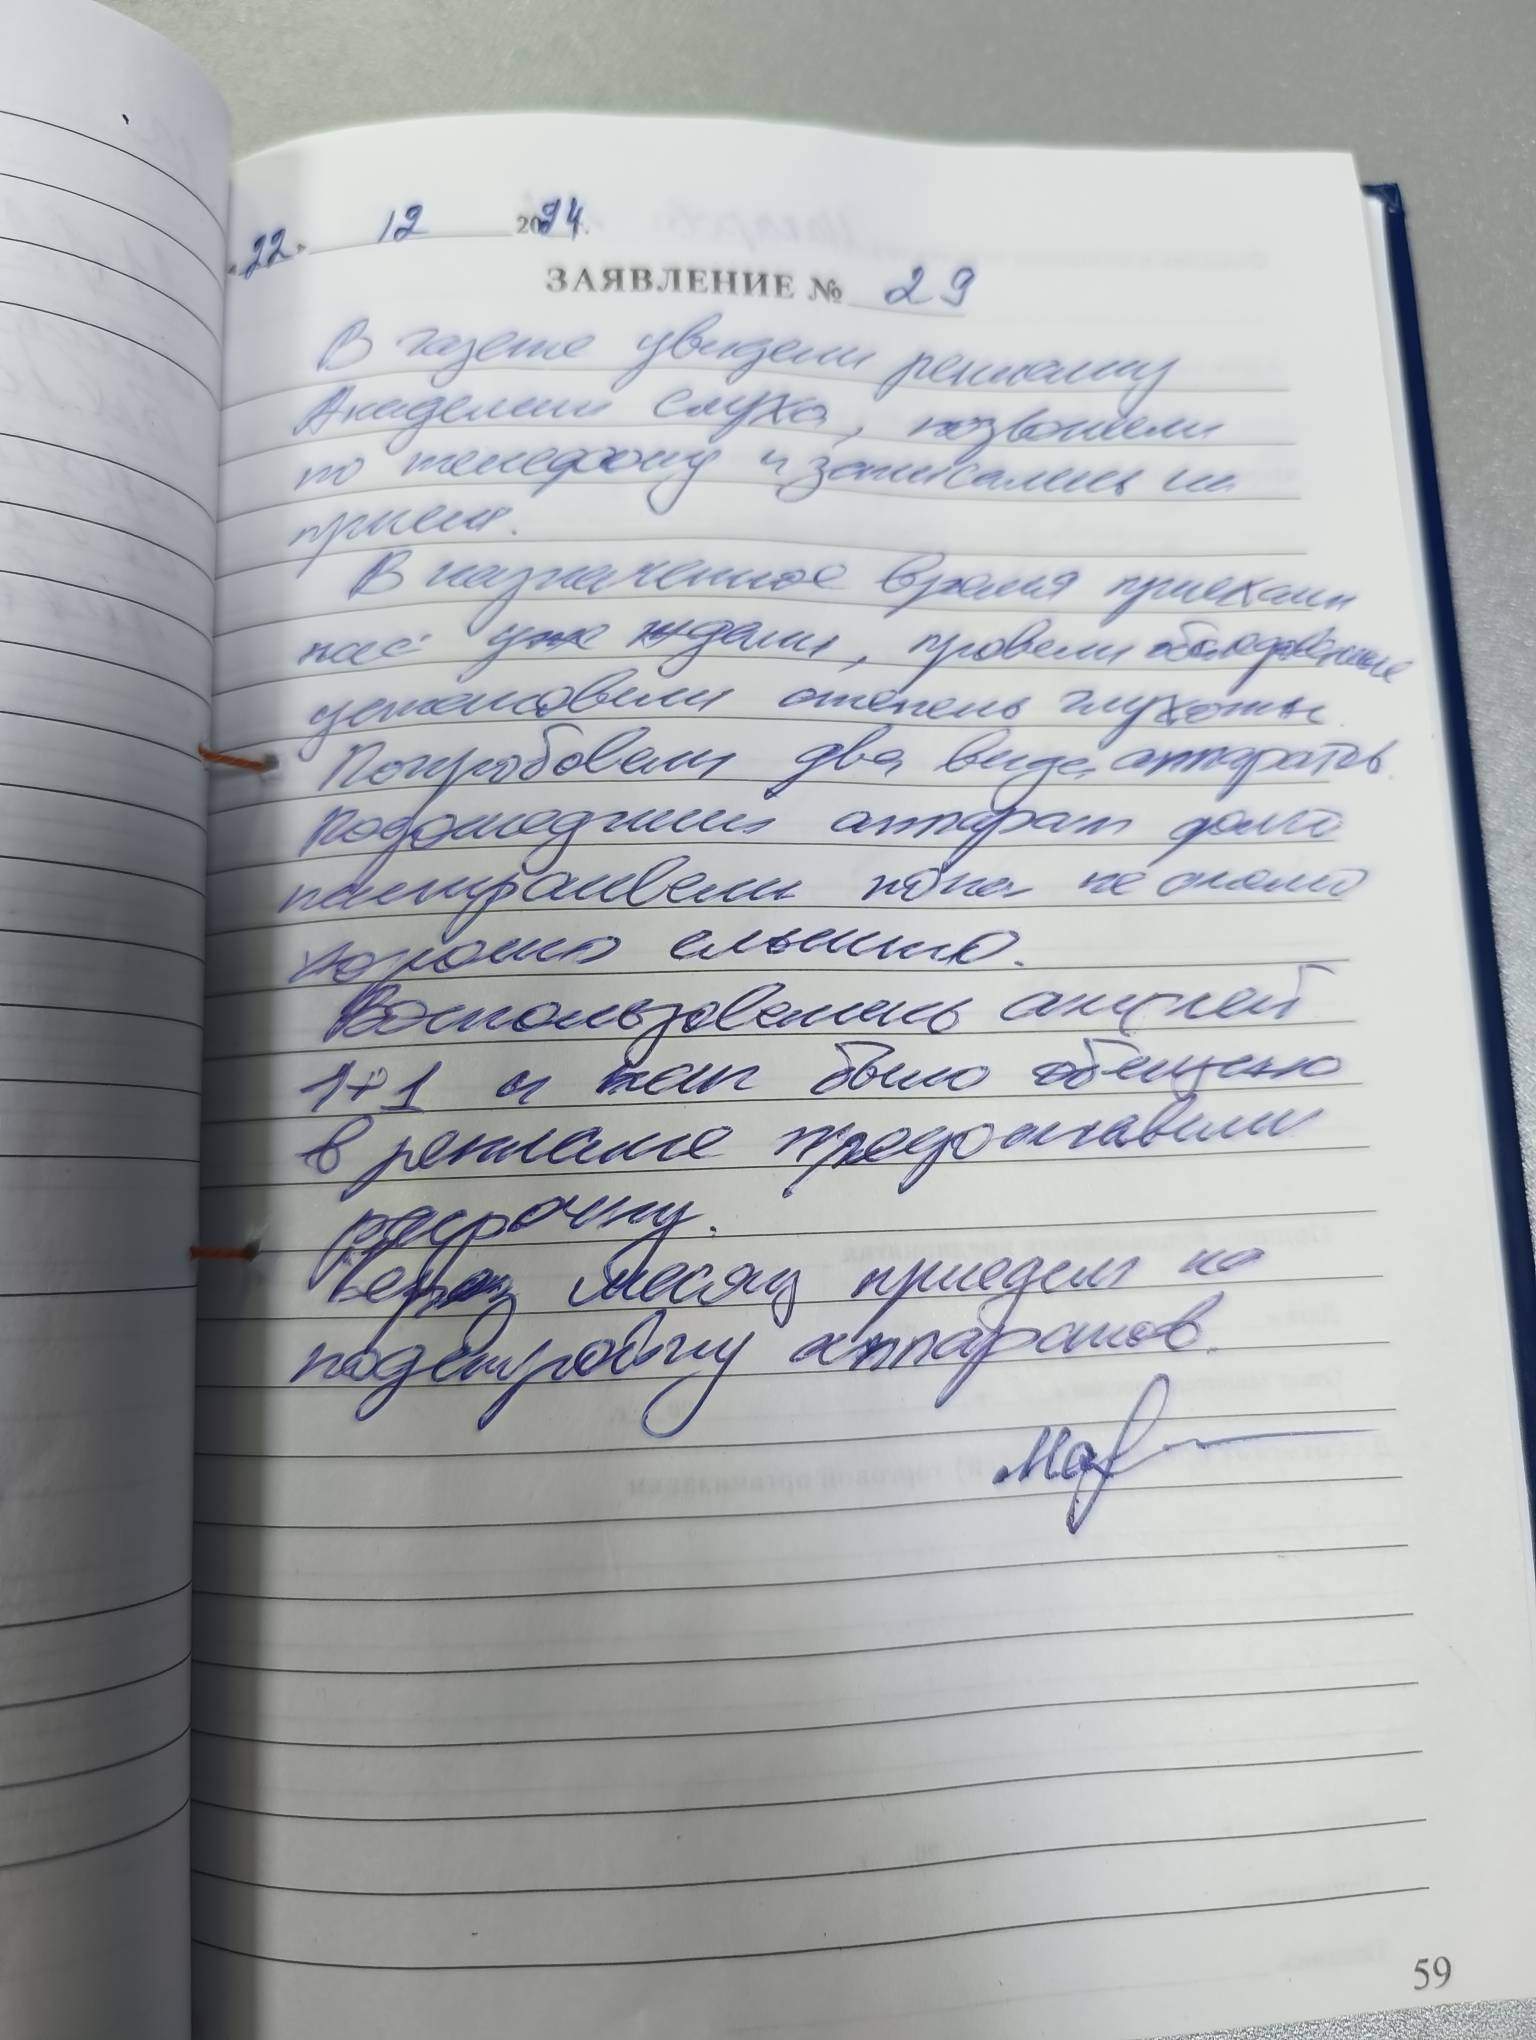 «22» 12 2024г.
ЗАЯВЛЕНИЕ № 29
В газете увидели рекламу
Академии слуха, позвонили
по телефону и записались на
прием.
В назначенное время приехали
нас уже ждали, провели обследование
установили степень глухоты.
Попробовали два вида аппаратов.
Подошедший аппарат долго
настраивали пока не стало
хорошо слышно.
Воспользовались акцией
1+1 и как было обещено
в рекламе предоставили
рассрочку.
Через месяц приедем на
подстройку аппаратов.
59